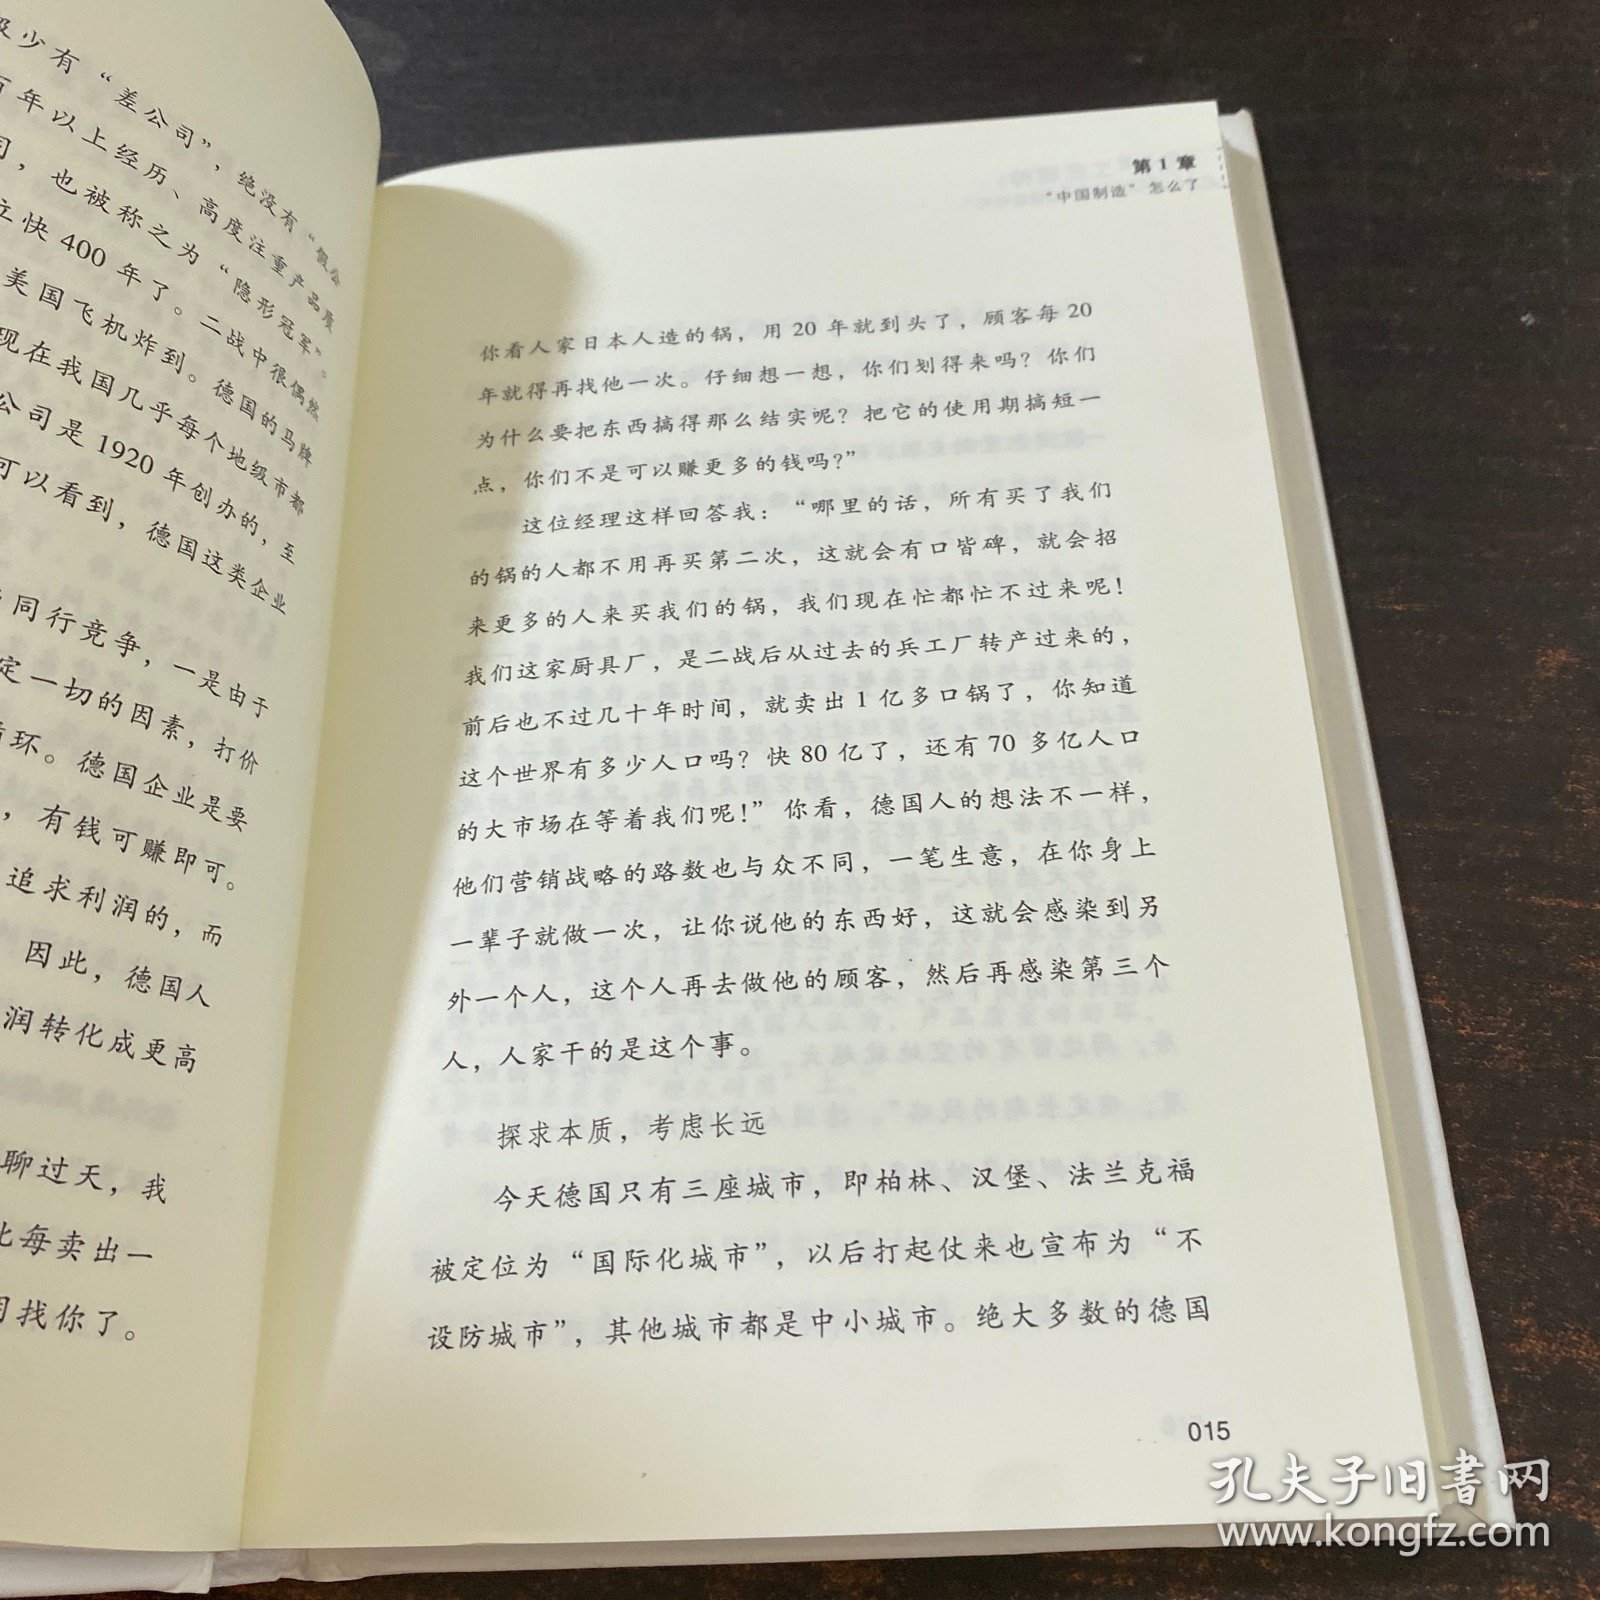 极少有“差公司”，绝没有“假公
百年以上经历、高度注重产品质
司，也被称之为“隐形冠军”。
立快 400 年了。二战中很偶然
美国飞机炸到。德国的马牌
现在我国几乎每个地级市都
公司是 1920 年创办的，至
可以看到，德国这类企业
同行竞争，一是由于
定一切的因素，打价
循环。德国企业是要
，有钱可赚即可。
追求利润的，而
因此，德国人
润转化成更高
聊过天，我
比每卖出一
找你了。
第 1 章
“中国制造”怎么了
你看人家日本人造的锅，用 20 年就到头了，顾客每 20
年就得再找他一次。仔细想一想，你们划得来吗？你们
为什么要把东西搞得那么结实呢？把它的使用期搞短一
点，你们不是可以赚更多的钱吗？”
这位经理这样回答我：“哪里的话，所有买了我们
的锅的人都不用再买第二次，这就会有口皆碑，就会招
来更多的人来买我们的锅，我们现在忙都忙不过来呢！
我们这家厨具厂，是二战后从过去的兵工厂转产过来的，
前后也不过几十年时间，就卖出 1 亿多口锅了，你知道
这个世界有多少人口吗？快 80 亿了，还有 70 多亿人口
的大市场在等着我们呢！”你看，德国人的想法不一样，
他们营销战略的路数也与众不同，一笔生意，在你身上
一辈子就做一次，让你说他的东西好，这就会感染到另
外一个人，这个人再去做他的顾客，然后再感染第三个
人，人家干的是这个事。
探求本质，考虑长远
今天德国只有三座城市，即柏林、汉堡、法兰克福
被定位为“国际化城市”，以后打起仗来也宣布为“不
设防城市”，其他城市都是中小城市。绝大多数的德国
015
孔夫子旧书网
www.kongfz.com